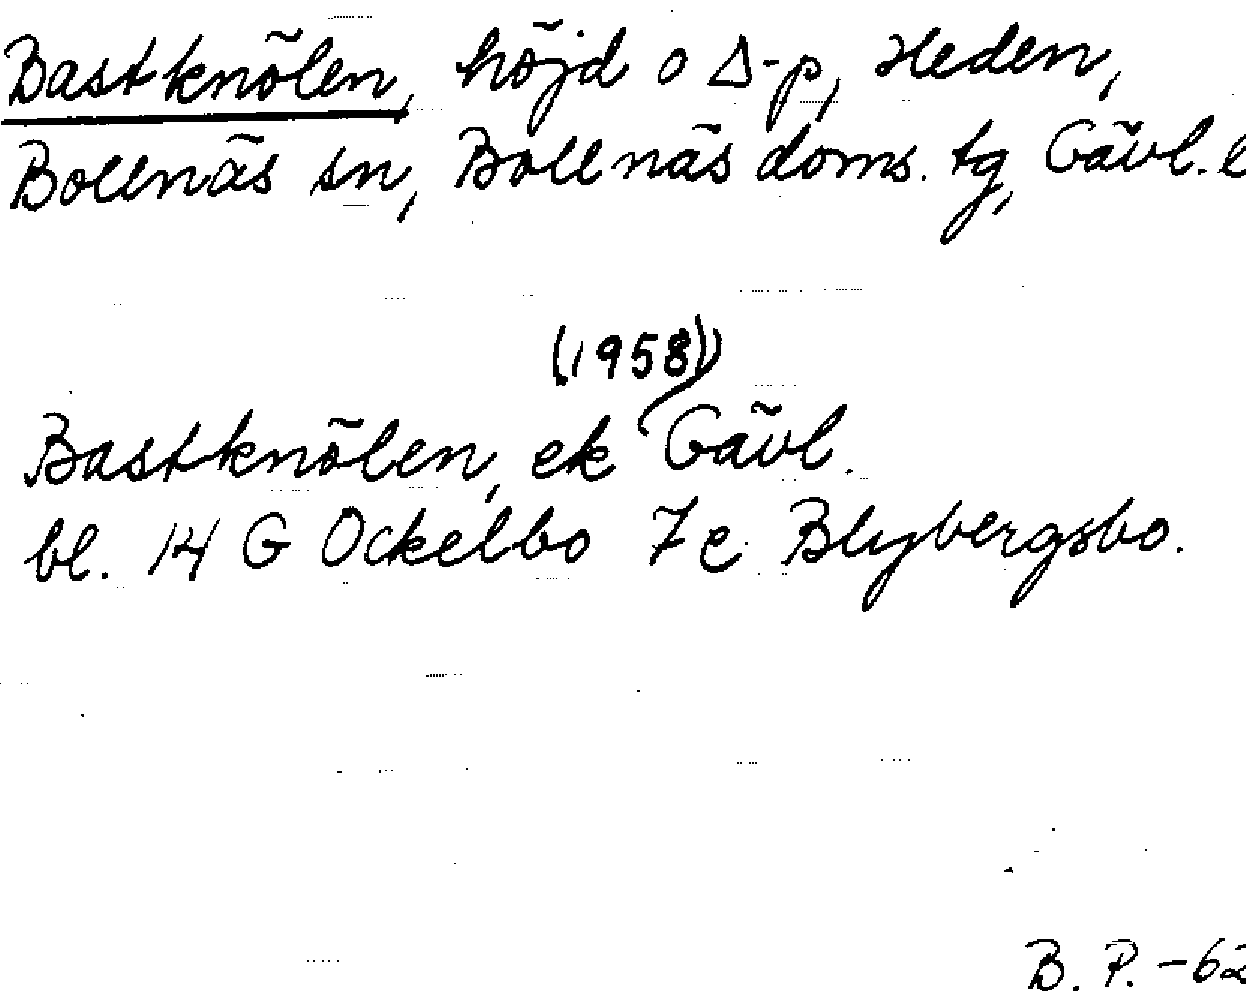 Bastknölen, höjd o Δ-p, Heden,
Bollnäs sn, Bollnäs doms. tg, Gävl. l
(1958)
Bastknölen, ek Gävl.
bl. 14 G Ockelbo 7c Blybergsbo.
B. P. -62